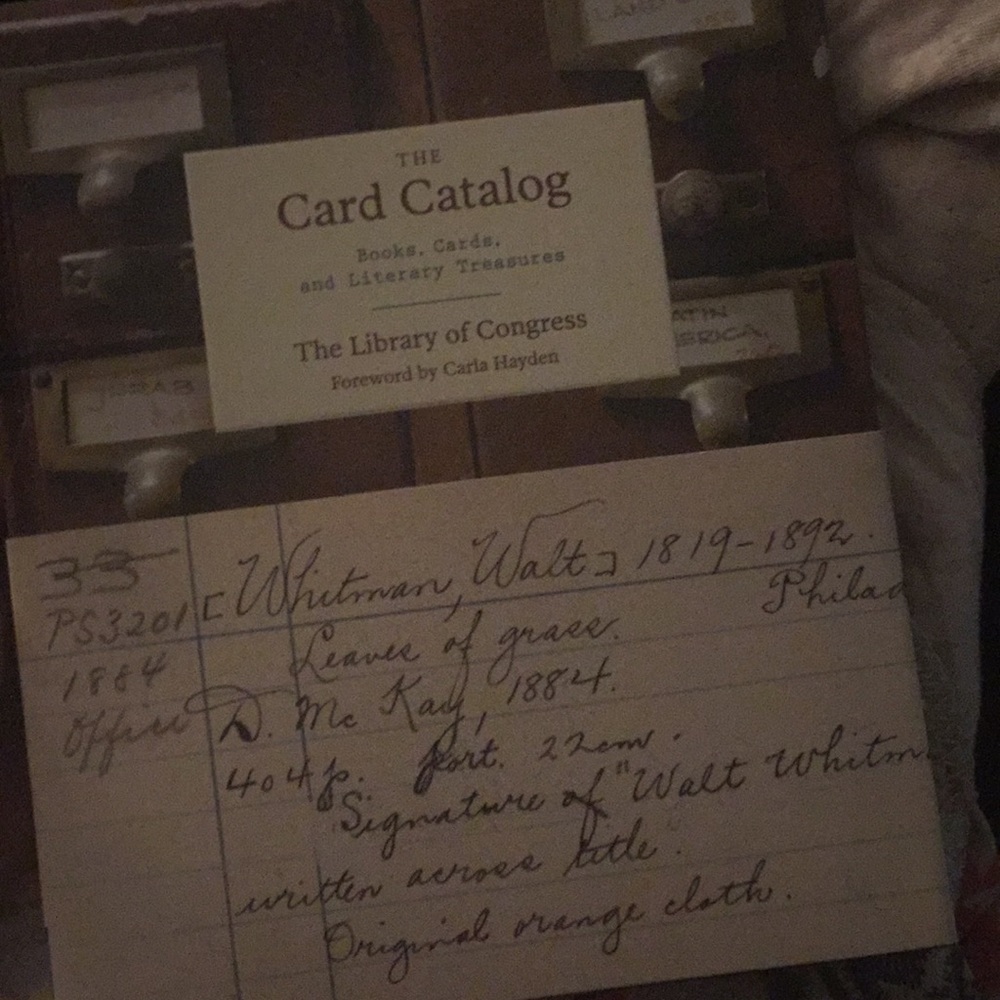 THE
Card Catalog
Books, Cards,
and Literary Treasures
The Library of Congress
Foreword by Carla Hayden
ATIN
ERICA.
33
PS3201
1884
Office
[Whitman, Walt] 1819-1892.
Leaves of grass. Philad
D. Mc Kay, 1884.
404p. port. 22cm.
Signature of "Walt Whitm
written across title.
Original orange cloth.